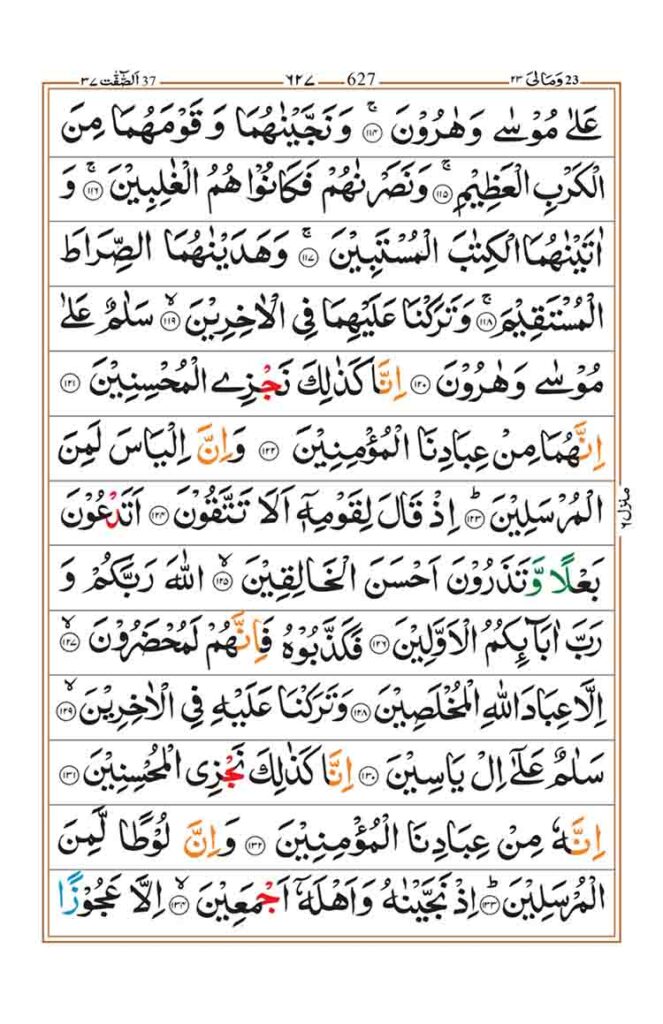 ٣٧ اَلصّٰٓفّٰت 37 ٦٢٧ 627 ٢٣ وَمَالِیَ 23
عَلٰى مُوْسٰى وَهٰرُوْنَ ۚ﴿۱۱۴﴾ وَنَجَّيْنٰهُمَا وَ قَوْمَهُمَا مِنَ
الْكَرْبِ الْعَظِيْمِ ۚ﴿۱۱۵﴾ وَنَصَرْنٰهُمْ فَكَانُوْا هُمُ الْغٰلِبِيْنَ ۚ﴿۱۱۶﴾ وَ
اٰتَيْنٰهُمَا الْكِتٰبَ الْمُسْتَبِيْنَ ۚ﴿۱۱۷﴾ وَهَدَيْنٰهُمَا الصِّرَاطَ
الْمُسْتَقِيْمَ ۚ﴿۱۱۸﴾ وَتَرَكْنَا عَلَيْهِمَا فِى الْاٰخِرِيْنَ ۙ﴿۱۱۹﴾ سَلٰمٌ عَلٰى
مُوْسٰى وَهٰرُوْنَ ﴿۱۲۰﴾ اِنَّا كَذٰلِكَ نَجْزِے الْمُحْسِنِيْنَ ﴿۱۲۱﴾
اِنَّهُمَا مِنْ عِبَادِنَا الْمُؤْمِنِيْنَ ﴿۱۲۲﴾ وَاِنَّ اِلْيَاسَ لَمِنَ
الْمُرْسَلِيْنَ ؕ﴿۱۲۳﴾ اِذْ قَالَ لِقَوْمِهٖۤ اَلَا تَتَّقُوْنَ ﴿۱۲۴﴾ اَتَدْعُوْنَ
بَعْلًا وَّتَذَرُوْنَ اَحْسَنَ الْخَالِقِيْنَ ۙ﴿۱۲۵﴾ اللّٰهَ رَبَّكُمْ وَ
رَبَّ اٰبَآئِكُمُ الْاَوَّلِيْنَ ﴿۱۲۶﴾ فَكَذَّبُوْهُ فَاِنَّهُمْ لَمُحْضَرُوْنَ ۙ﴿۱۲۷﴾
اِلَّا عِبَادَ اللّٰهِ الْمُخْلَصِيْنَ ﴿۱۲۸﴾ وَتَرَكْنَا عَلَيْهِ فِى الْاٰخِرِيْنَ ۙ﴿۱۲۹﴾
سَلٰمٌ عَلٰٓى اِلْ يَاسِيْنَ ﴿۱۳۰﴾ اِنَّا كَذٰلِكَ نَجْزِى الْمُحْسِنِيْنَ ﴿۱۳۱﴾
اِنَّهٗ مِنْ عِبَادِنَا الْمُؤْمِنِيْنَ ﴿۱۳۲﴾ وَاِنَّ لُوْطًا لَّمِنَ
الْمُرْسَلِيْنَ ؕ﴿۱۳۳﴾ اِذْ نَجَّيْنٰهُ وَاَهْلَهٗۤ اَجْمَعِيْنَ ۙ﴿۱۳۴﴾ اِلَّا عَجُوْزًا
منزل ٦